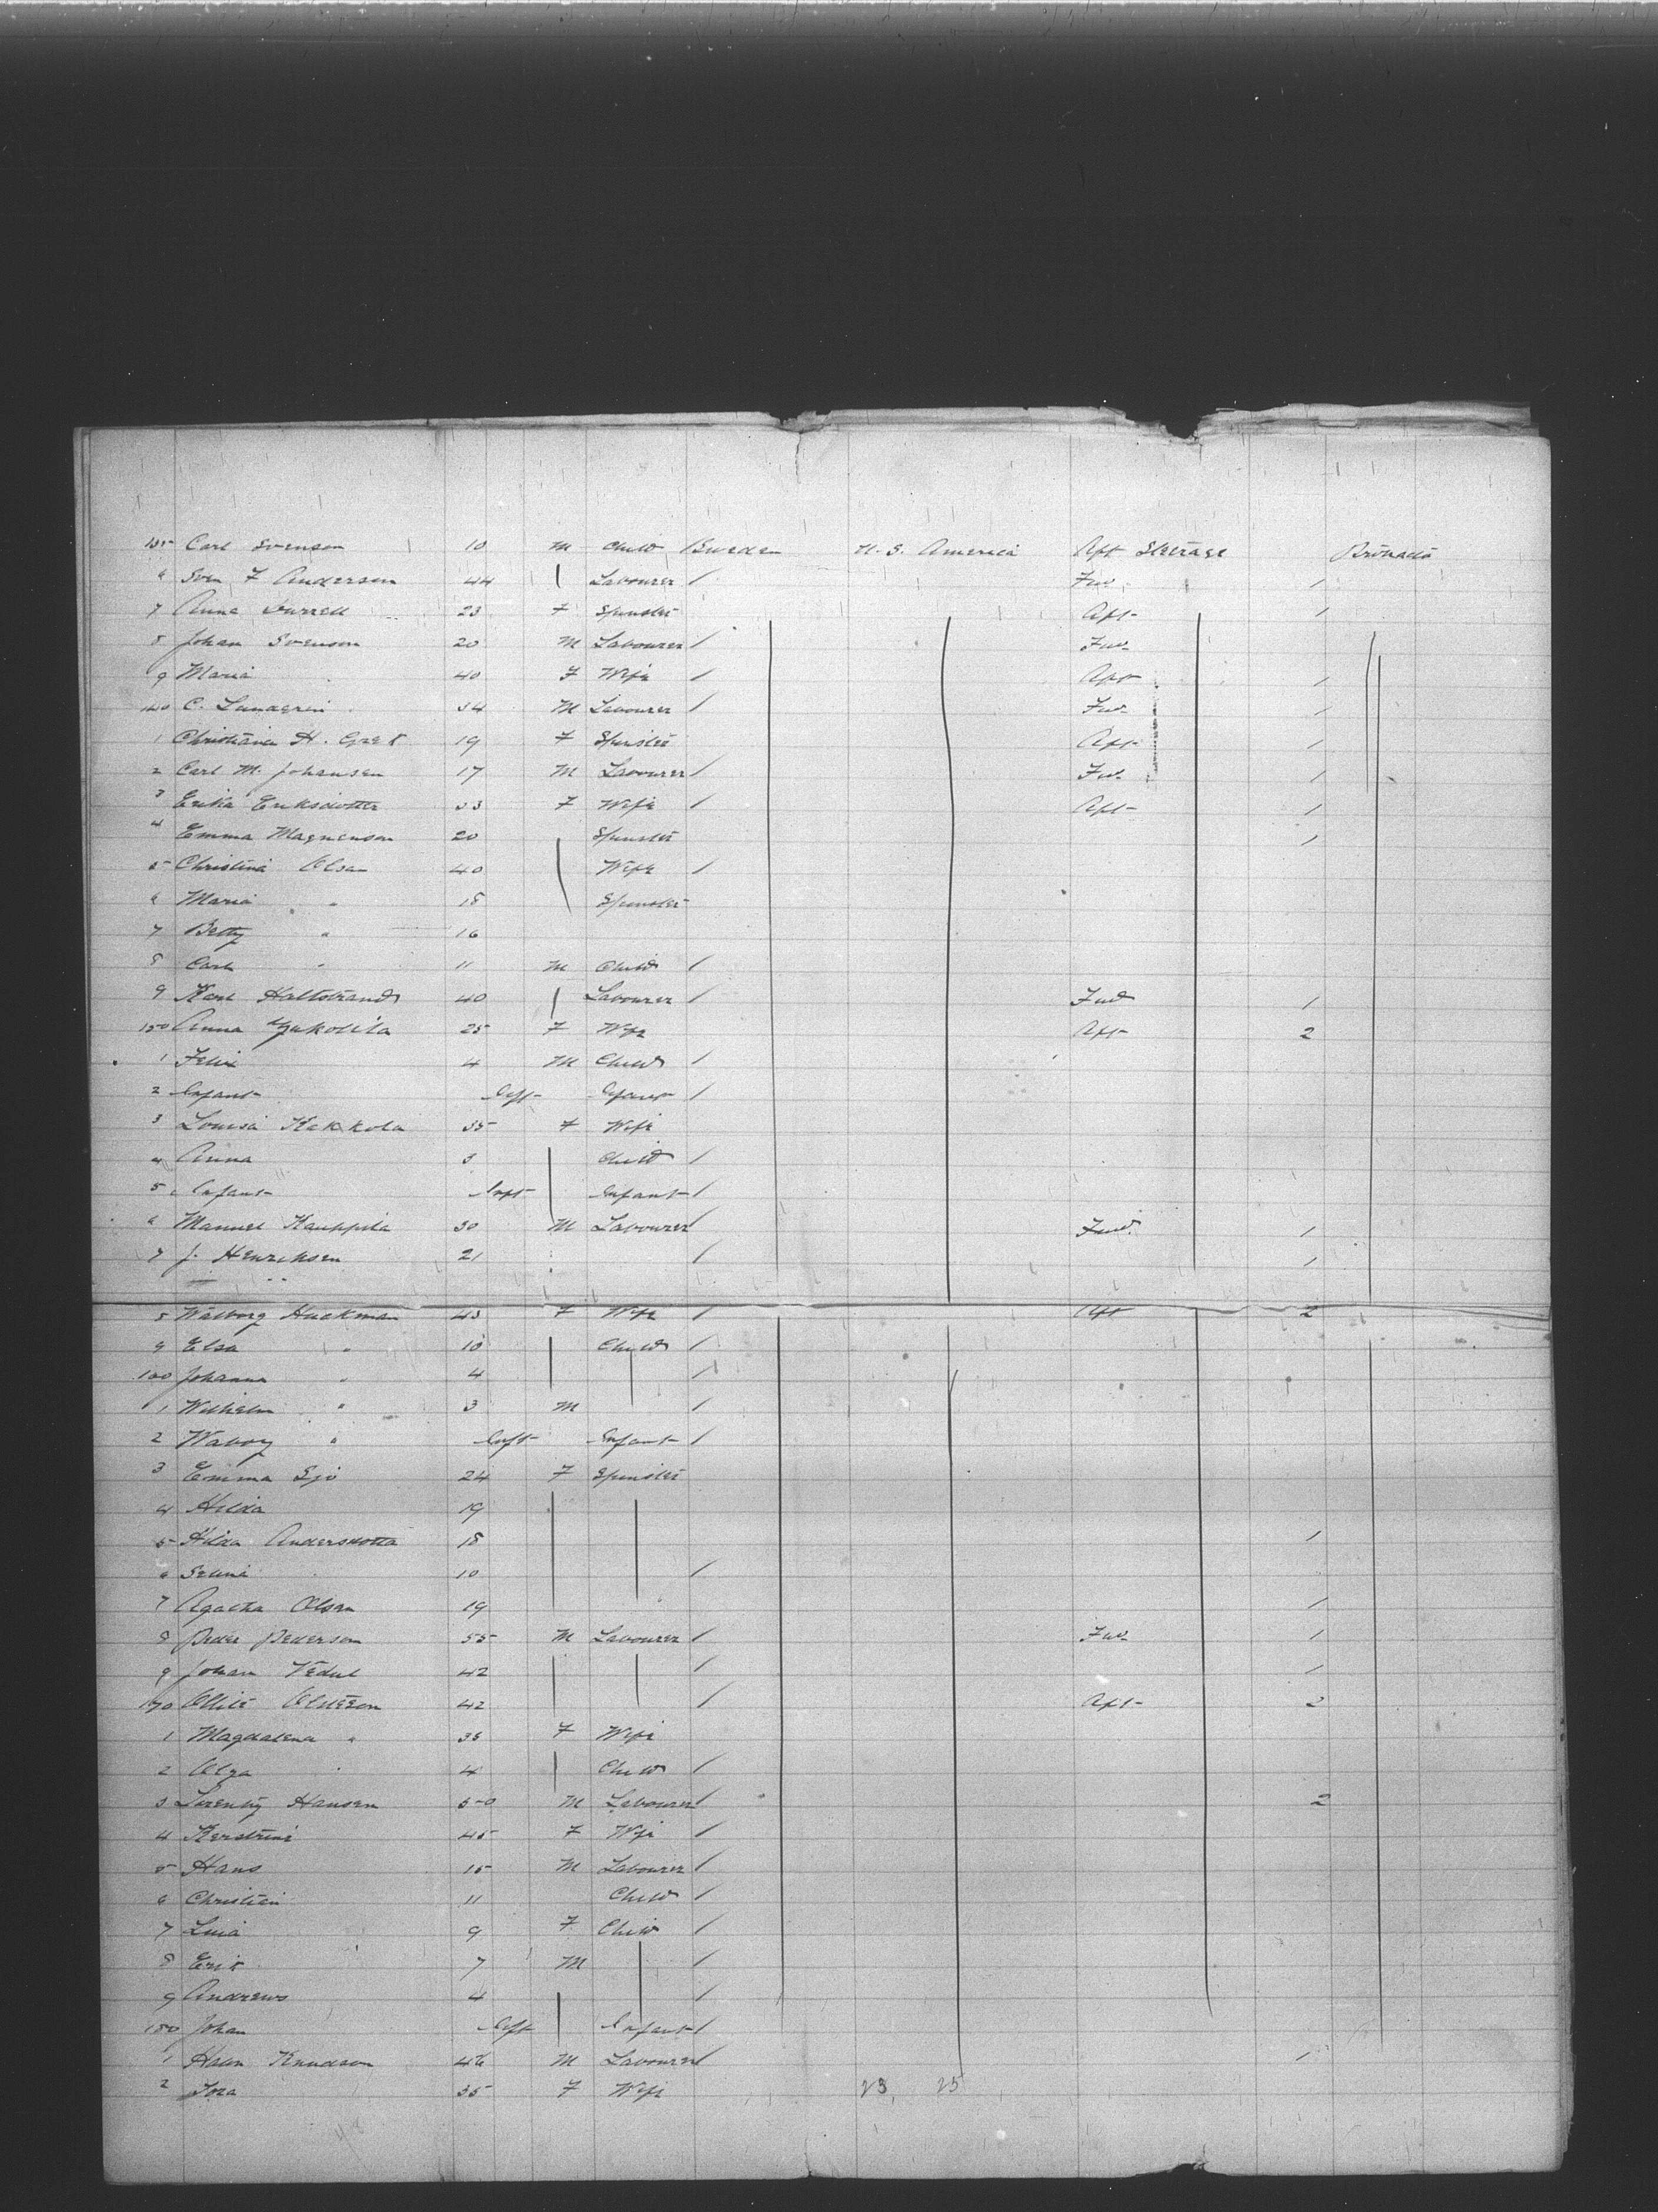 135 Carl Svenson 10 M Child Sweden U. S. America Aft Steerage
6 Sven F Anderson 44 Labourer / Fwd 1
7 Anna 23 F Spinster Aft 1
8 Johan Svenson 20 M Labourer / Fwd
9 Maria 40 F Wife / Aft 1
140 C. Lundgren 34 M Labourer / Fwd 1
1 Christiana H. 19 F Spinster Aft 1
2 Carl M. Johansen 17 M Labourer / Fwd 1
3 Erika Eriksdotter 33 F Wife / Aft 1
4 Emma Magnenson 20 Spinster 1
5 Christina Olsen 40 Wife /
6 Maria " 18 Spinster
7 Betty " 16
8 Carl " 11 M Child /
9 Karl Haltstrand 40 Labourer / Fwd 1
150 Anna 25 F Wife Aft 2
1 Felix 4 M Child /
2 Infant Inft Infant /
3 Louisa Kakkola 35 F Wife
4 Anna 3 Child /
5 Infant Inft Infant /
6 Manuel Kauppila 30 M Labourer / Fwd. 1
7 J. Henricksen 21 / 1
8 Walborg Huckman 43 F Wife / Aft 2
9 Elsa " 10 Child /
160 Johanna " 4 /
1 Wilhelm " 3 M /
2 Waborg " Inft Infant /
3 Emma Sjo 24 F Spinster
4 Hilda 19
5 Hilda Andersdotter 18 1
6 Selina 10 /
7 Agatha Olsen 19 1
8 Peder Pederson 55 M Labourer / Fwd 1
9 Johan 42 / 1
170 42 / Aft 2
1 Magdalena " 35 F Wife
2 Olga " 4 Child /
3 Hansen 50 M Labourer / 2
4 Kerstine 45 F Wife /
5 Hans 15 M Labourer /
6 Christian 11 Child /
7 Lina 9 F Child /
8 Erik 7 M /
9 Andrews 4 /
180 Johan Inft Infant /
1 Knudsen 46 M Labourer / 1
2 Tora 35 F Wife 23 25